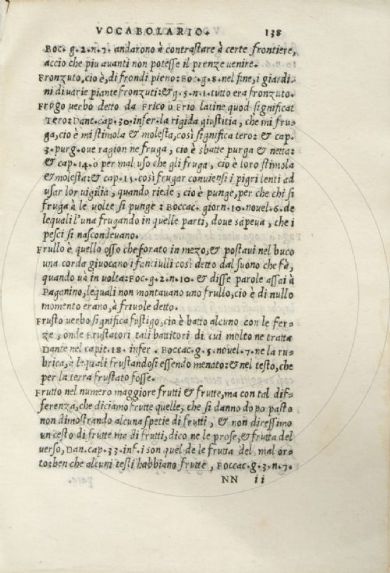 VOCABOLARIO. 138
Boc. g. 2. n. 7. andarono à contrastare à certe frontiere,
accio che piu auanti non potesse il prenze uenire.
Fronzuto, cio è, di frondi pieno: Boc. g. 8. nel fine, i giardi-
ni di uarie piante fronzuti: & g. 5. n. 1. tutto era fronzuto.
Frugo uerbo detto da Frico ò Frio latine quod significat
Tero: Dant. cap. 30. infer. la rigida giustitia, che mi fru-
ga, cio è mi stimola & molesta, così significa tero: & cap.
3. purg. oue ragion ne fruga, cio è sbatte purga & netta:
& cap. 14. ò per mal uso che gli fruga, cio è loro stimola
& molesta: & cap. 15. così frugar conuiensi i pigri lenti ad
usar lor uigilia, quando riede, cio è punge, per che chi si
fruga à le uolte si punge: Boccac. giorn. 10. nouel. 6. de
lequali l'una frugando in quelle parti, doue sapeua, che i
pesci si nascondeuano.
Frullo è quello osso che forato in mezo, & postaui nel buco
una corda giuocano i fanciulli così detto dal suono che fè,
quando ua in uolta: Boc. g. 2. n. 10. & disse parole assai à
Paganino, lequali non montauano uno frullo, cio è di nullo
momento erano, à friuole detto.
Frusto uerbo significa fustigo, cio è batto alcuno con le fer-
ze, onde Frustatori tali battitori di cui molto ne tratta
Dante nel capit. 18. infer. Boccac. g. 5. nouel. 7. ne la ru-
brica, à le quali frustandosi essendo menato: & nel testo, che
per la terra frustato fosse.
Frutto nel numero maggiore frutti & frutte, ma con tal dif-
ferenza, che diciamo frutte quelle, che si danno dopo pasto
non dimostrando alcuna spetie di frutti, & non diressimo
un cesto di frutte ma di frutti, dico ne le prose, & frutta del
uerso, Dan. cap. 33. inf. i son quel de le frutta del mal or-
to: ben che alcuni testi habbiano frutte, Boccac. g. 3. n. 7.
NN ii